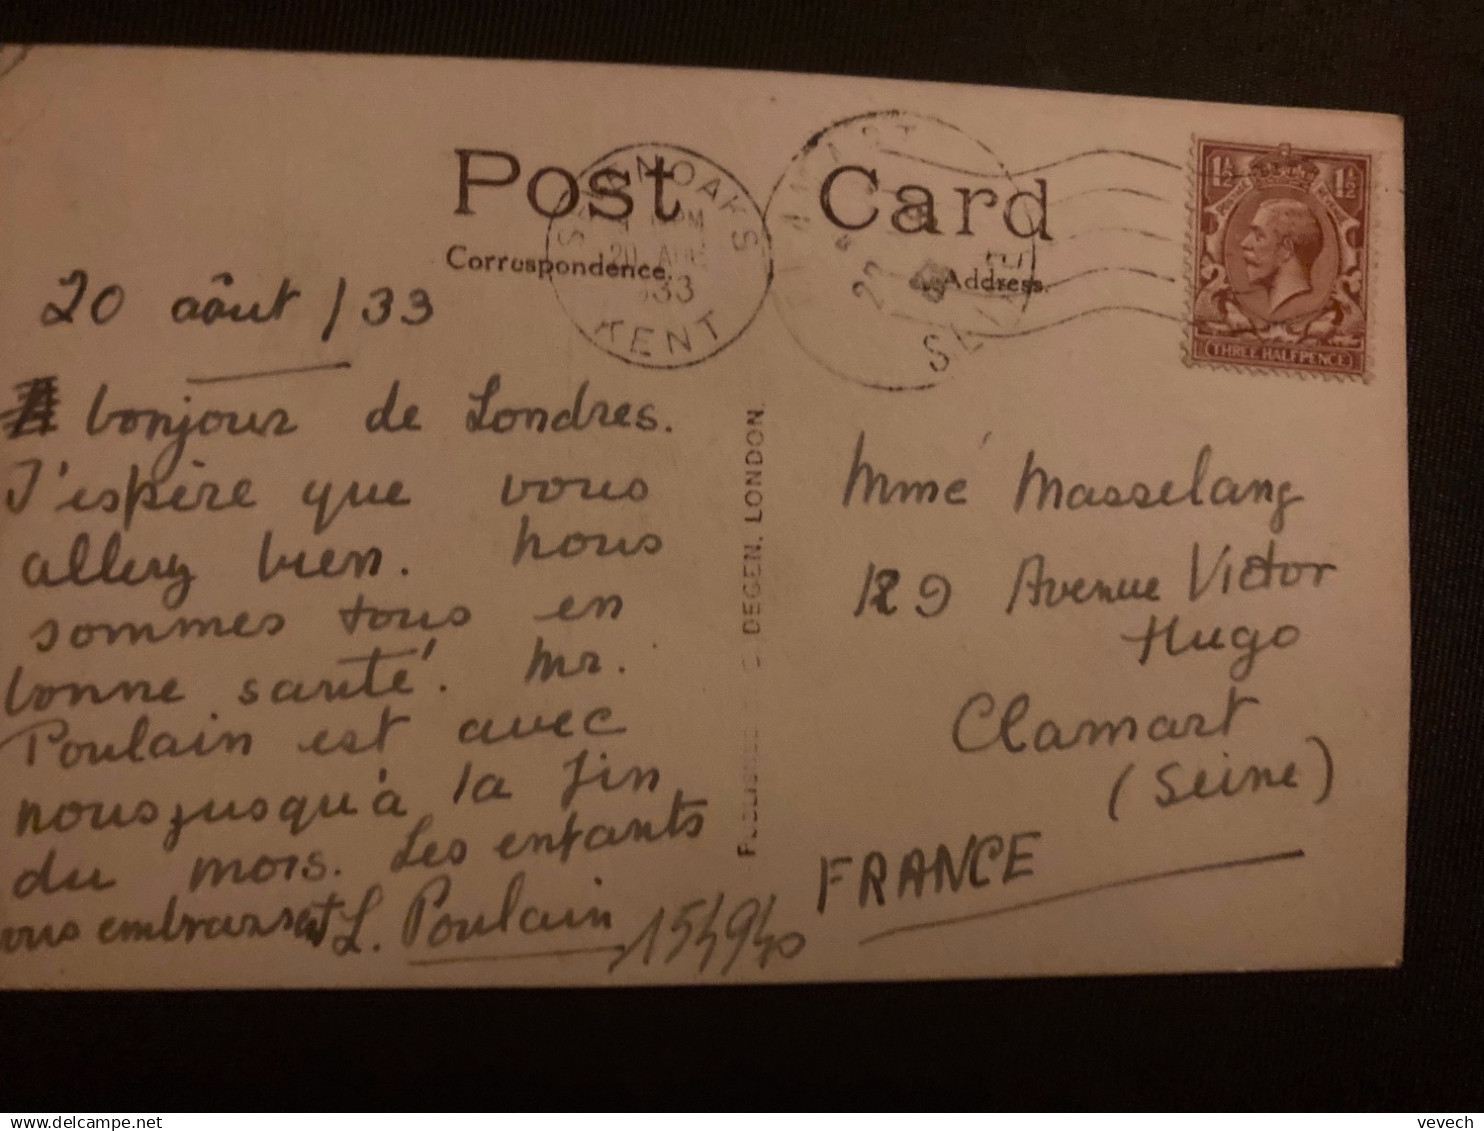 Post Card
Correspondence.
Address.
SEVENOAKS
PM
20 AUG
1933
KENT
CLAMART
22
SEINE
1½ 1½
POSTAGE REVENUE
(THREE HALFPENCE)
20 aôut / 33
bonjour de Londres.
J'espère que vous
allez bien. nous
sommes tous en
bonne santé. Mr.
Poulain est avec
nous jusqu'à la fin
du mois. Les enfants
vous embrassent L. Poulain
PUBLISHED DEGEN, LONDON.
Mmé Masselang
129 Avenue Victor
Hugo
Clamart
(Seine)
FRANCE
vevech